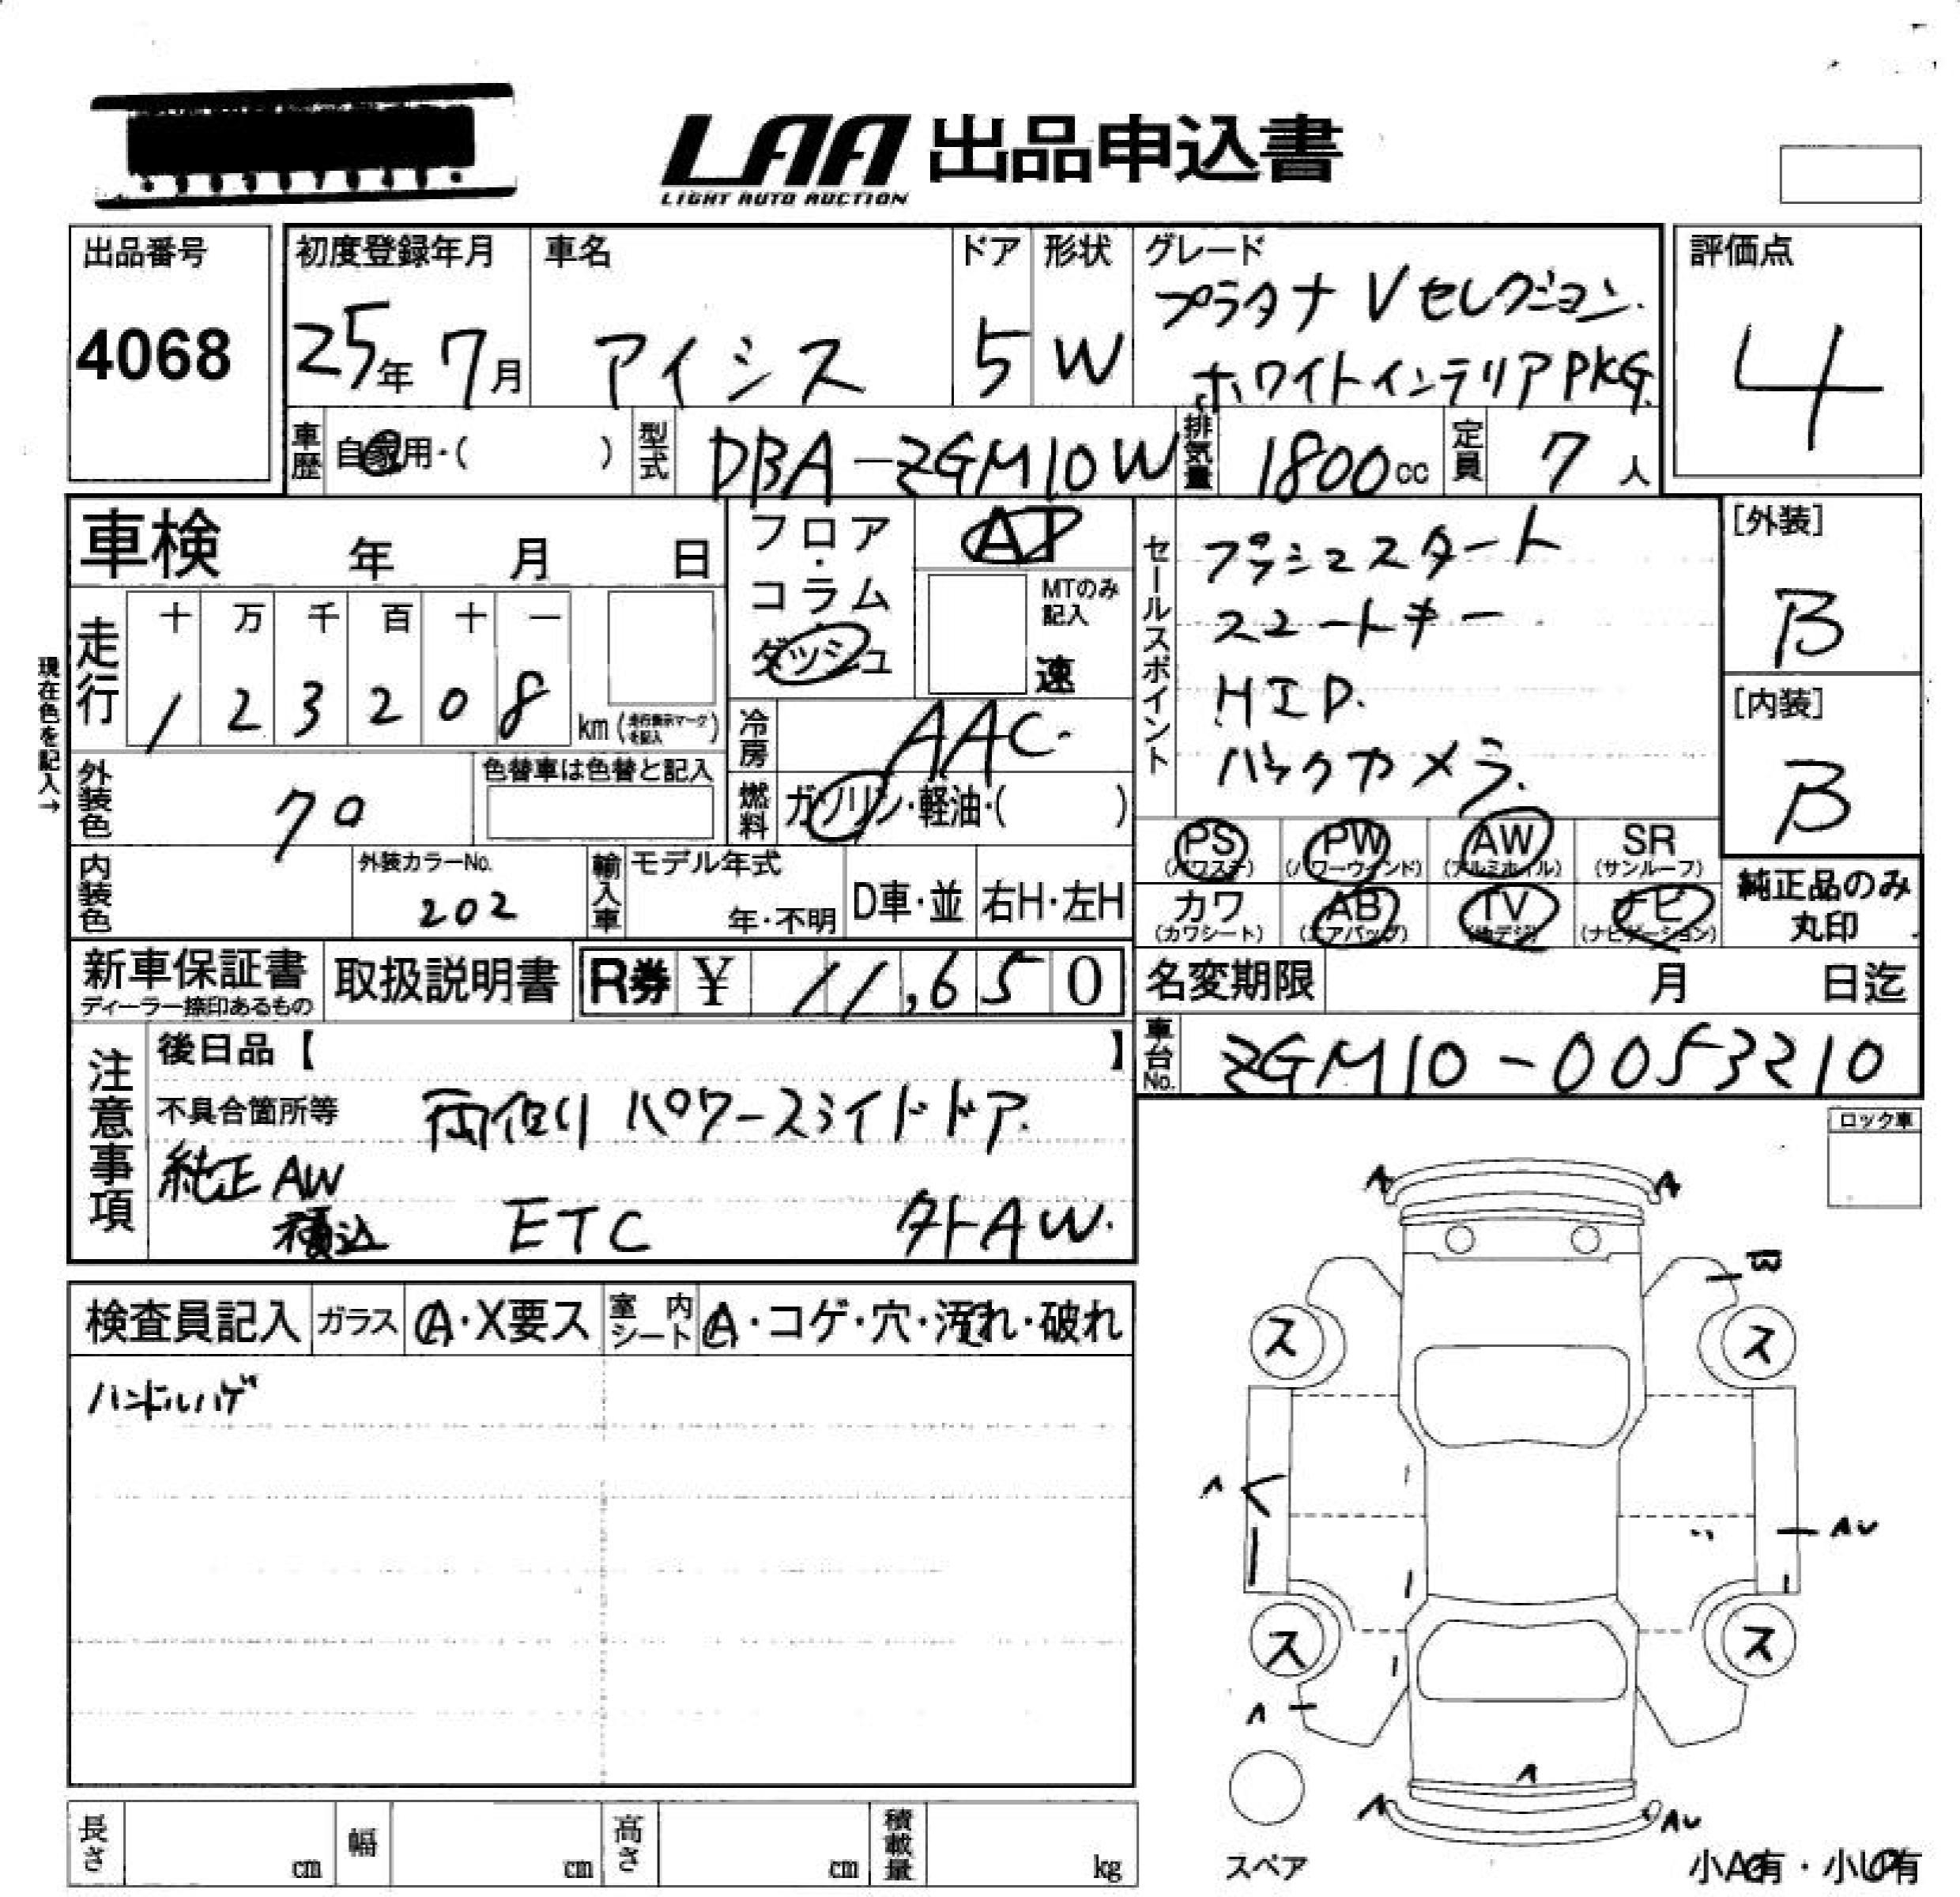 LAA 出品申込書
LIGHT AUTO AUCTION
出品番号
4068
初度登録年月
25年 7月
車名
アイシス
ドア
5
形状
W
グレード
プラタナ Vセレクション.
ホワイトインテリアPKG.
評価点
4
車歴 自家用・( )
型式 DBA-ZGM10W
排気量 1800cc
定員 7人
車検 年 月 日
フロア・コラム・ダッシュ
AT
MTのみ記入
速
現在色を記入→
走行
十 万 千 百 十 一
1 2 3 2 0 8
km (走行表示マークを記入)
冷房 AAC.
燃料 ガソリン・軽油・( )
外装色 70
色替車は色替と記入
内装色
外装カラーNo.
202
輸入車
モデル年式
年・不明
D車・並
右H・左H
セールスポイント
プッシュスタート
スマートキー
HID.
バックカメラ.
[外装]
B
[内装]
B
PS (パワステ)
PW (パワーウィンド)
AW (アルミホイル)
SR (サンルーフ)
カワ (カワシート)
AB (エアバッグ)
TV (地デジ)
ナビ (ナビゲーション)
純正品のみ
丸印
新車保証書
ディーラー捺印あるもの
取扱説明書
R券 ¥ 11,650
名変期限 月 日迄
車台No. ZGM10-0053210
注意事項
後日品【 】
不具合箇所等 両側パワースライドドア.
純正AW
積込 ETC 外AW.
ロック車
検査員記入
ガラス A・X要ス
室内シート A・コゲ・穴・汚れ・破れ
ハンドルハゲ
A A
ス ス
A AU
ス ス
A
A
A AU
スペア
小A有・小U有
長さ cm
幅 cm
高さ cm
積載量 kg